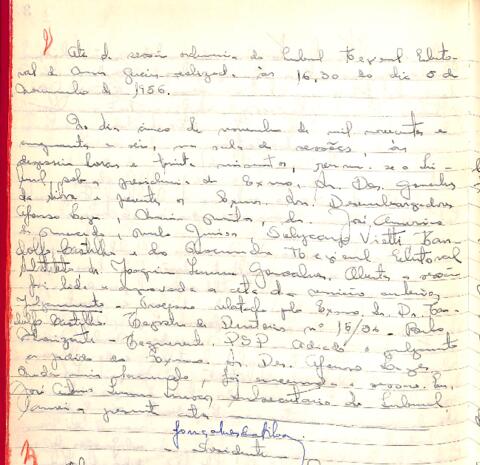 Ata da sessão ordinaria do Tribunal Regional Eleito-
ral de Minas Gerais realizada às 16,30 do dia 5 de
novembro de 1956.
Ao dia cinco de novembro de mil novecentos e
cinquenta e seis, na sala de sessões, às
dezesseis horas e trinta minutos, reuniu-se o Tri-
bunal, sob a presidencia do Exmo. Sr. Des. Gonçalves
da Silva e presentes os Exmos. Srs. Desembargadores
Afonso Lages, Srs. José Americo
Macedo, Junior, Vietti
dolfo Castilho e do Procurador Regional Eleitoral
substituto Dr. Joaquim Gonçalves. Aberta a sessão
foi lida e aprovada a ata da reunião anterior.
Julgamento - Processo relatado pelo Exmo. Sr. Dr.
dolfo Castilho. Registro de Diretorio nº 15/56 - Belo
Horizonte - Requerente, PSP. Adiado o julgamento
a pedido do Exmo. Sr. Des. Afonso Lages.
Nada mais havendo, foi encerrada a sessão. Eu,
José subsecretario do Tribunal
lavrei a presente ata.
Gonçalves da Silva
Presidente